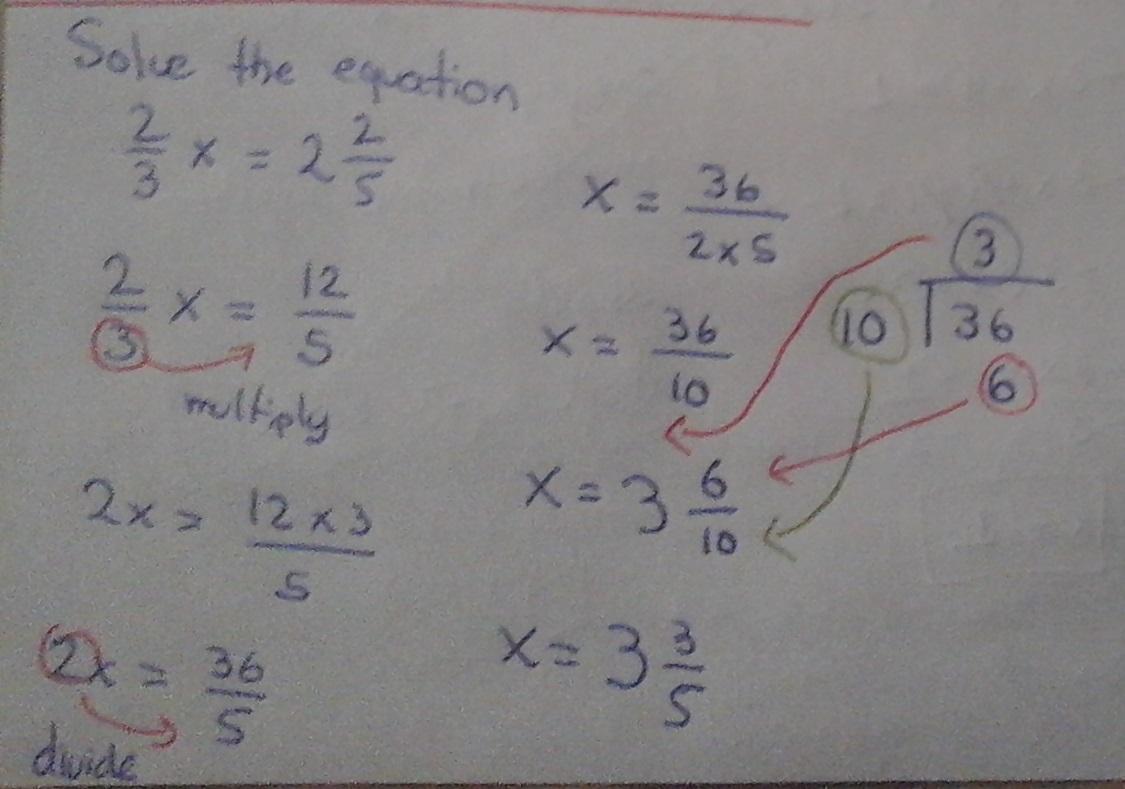 Solve the equation
2/3 x = 2 2/5
2/3 x = 12/5
multiply
2x = 12 x 3/5
2x = 36/5
divide
x = 36/2 x 5
x = 36/10
x = 3 6/10
x = 3 3/5
3
10 36
6